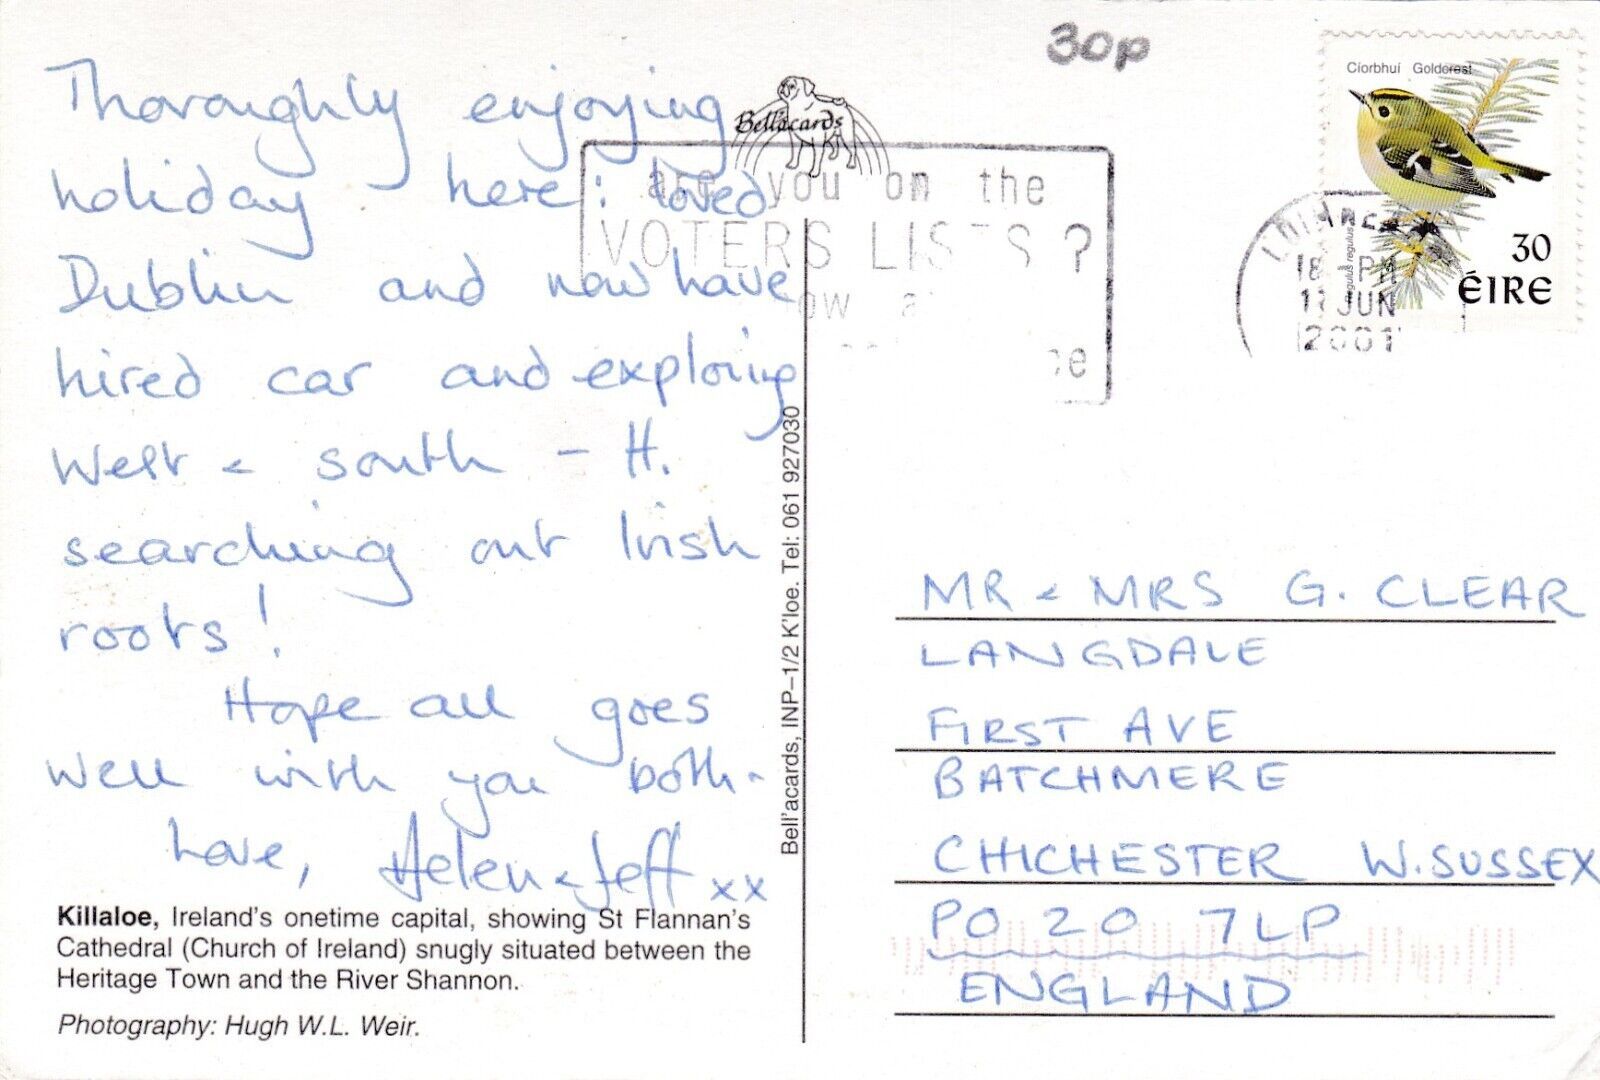 30p
Bell'acards
Cíorbhuí Goldcrest
regulus regulus
30
ÉIRE
PM
JUN
2001
are you on the
VOTERS LISTS ?
Thoroughly enjoying
holiday here: loved
Dublin and now have
hired car and exploring
West & south - H.
searching out Irish
roots!
Hope all goes
well with you both.
Love, Helen & Jeff xx
Killaloe, Ireland's onetime capital, showing St Flannan's
Cathedral (Church of Ireland) snugly situated between the
Heritage Town and the River Shannon.
Photography: Hugh W.L. Weir.
Bell'acards, INP–1/2 K'loe. Tel: 061 927030
MR & MRS G. CLEAR
LANGDALE
FIRST AVE
BATCHMERE
CHICHESTER W. SUSSEX
PO 20 7LP
ENGLAND